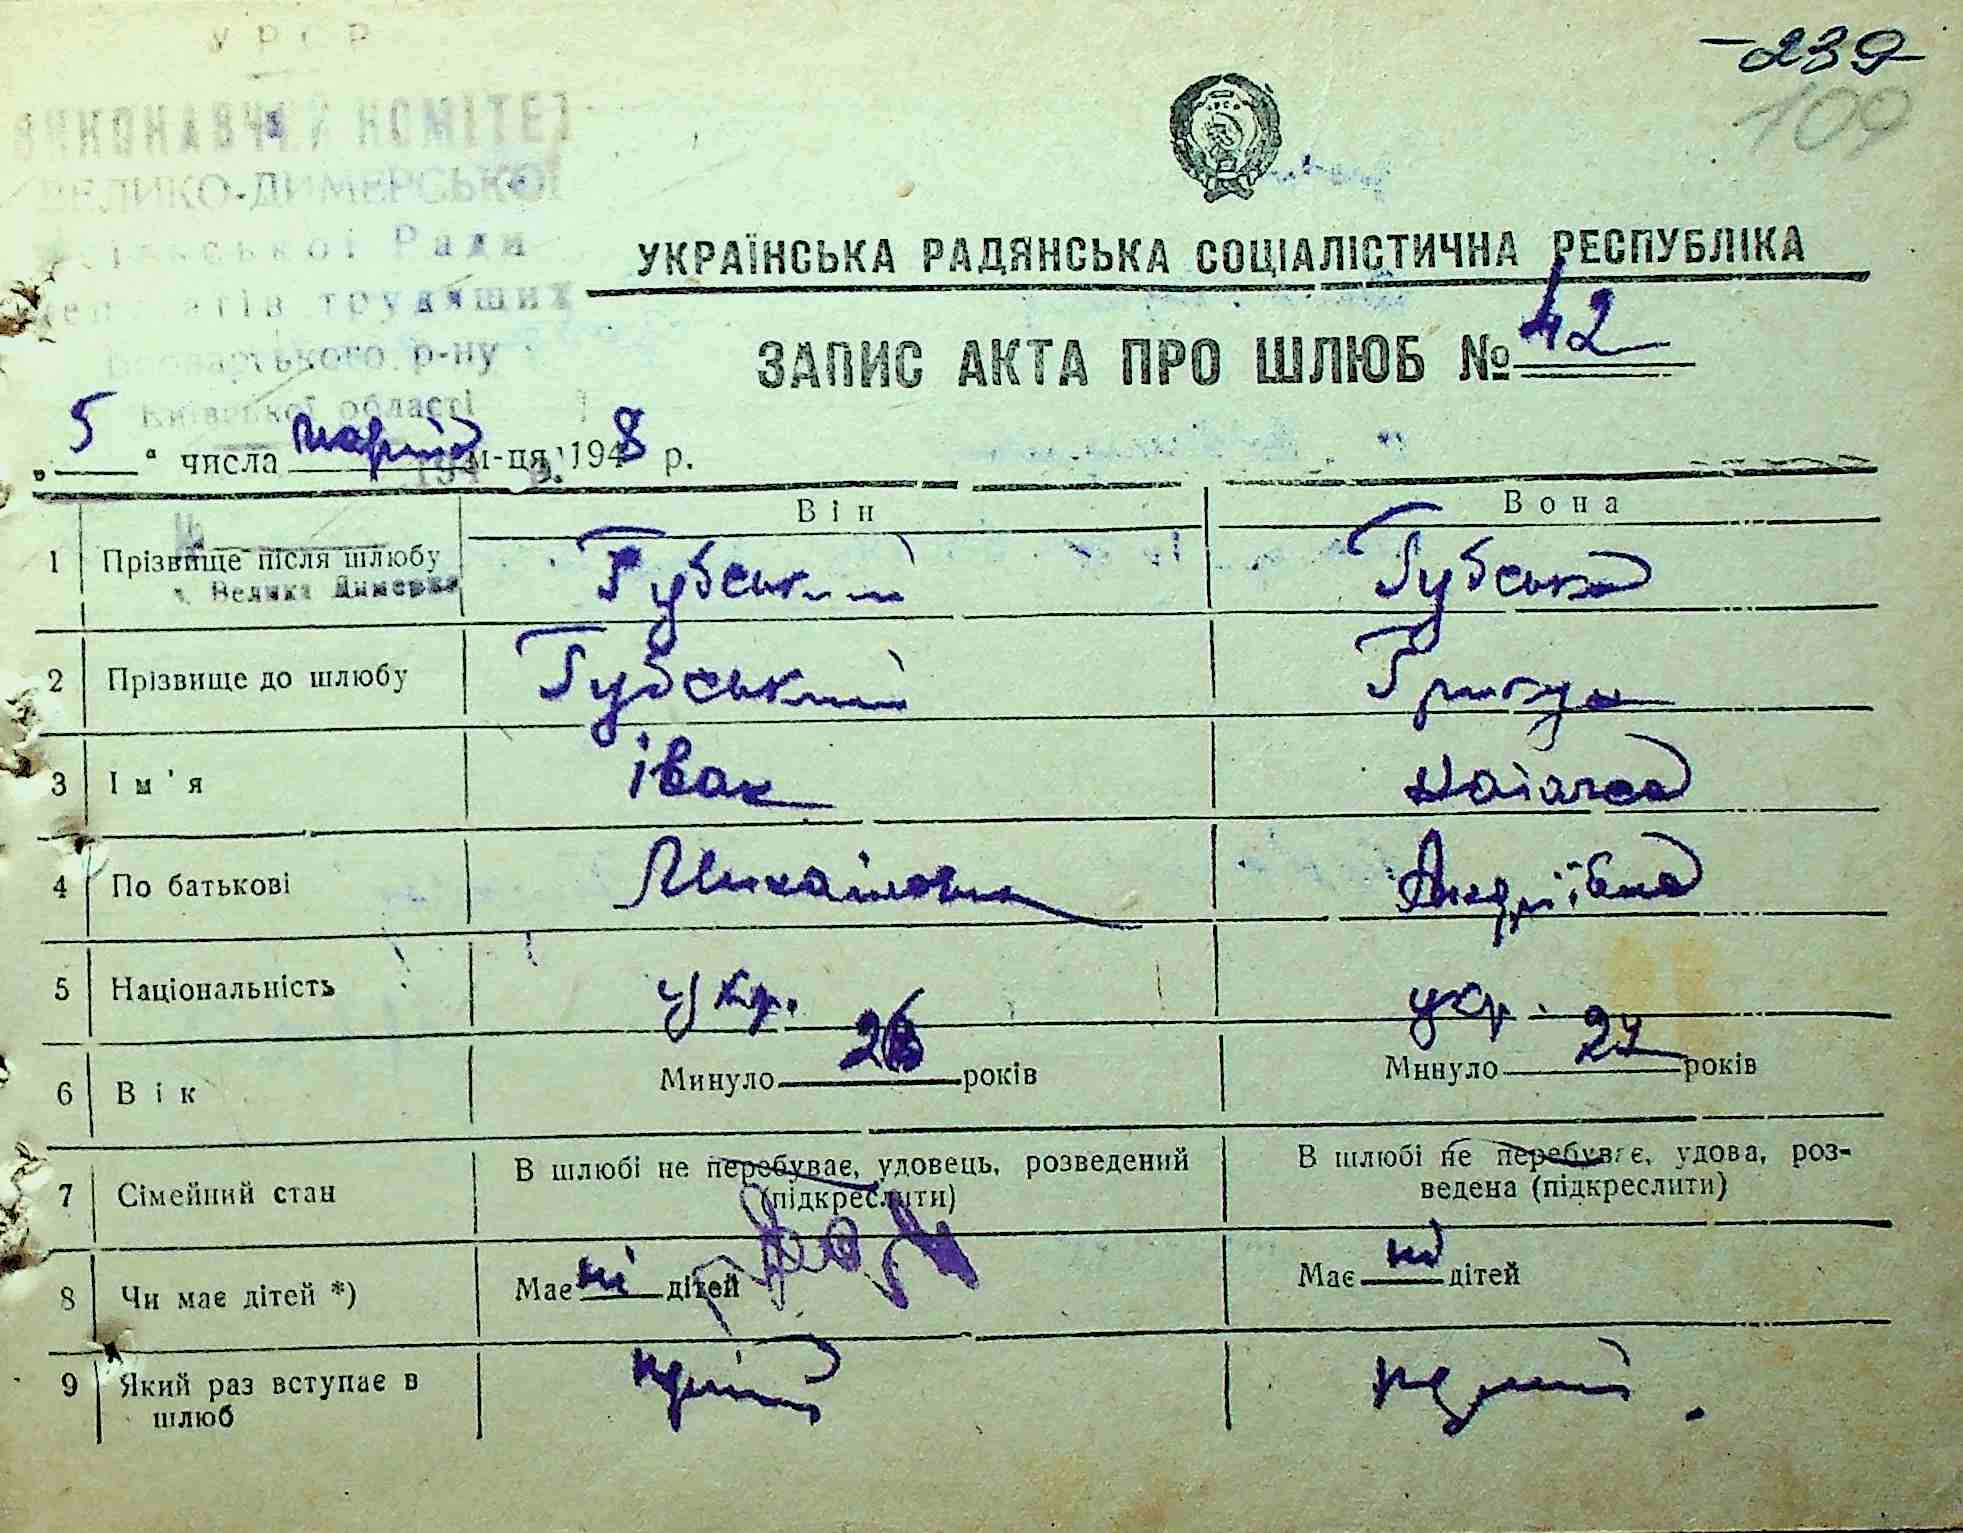 УРСР
-239-
109
ВИКОНАВЧИЙ КОМІТЕТ
ВЕЛИКО-ДИМЕРСЬКОЇ
сільської Ради
депутатів трудящих
Броварського р-ну
Київської області
УКРАЇНСЬКА РАДЯНСЬКА СОЦІАЛІСТИЧНА РЕСПУБЛІКА
ЗАПИС АКТА ПРО ШЛЮБ № 42
„ 5 " числа м-ця 1948 р.
Він Вона
1 Прізвище після шлюбу Губський Губська
с. Велика Димерка
2 Прізвище до шлюбу Губський
3 Ім'я Іван
4 По батькові Михайлович Андріївна
5 Національність укр. укр.
6 Вік Минуло 26 років Минуло 24 років
7 Сімейний стан В шлюбі не перебуває, удовець, розведений (підкреслити) В шлюбі не перебуває, удова, роз-
ведена (підкреслити)
8 Чи має дітей *) Має ні дітей Має ні дітей
9 Який раз вступає в
шлюб